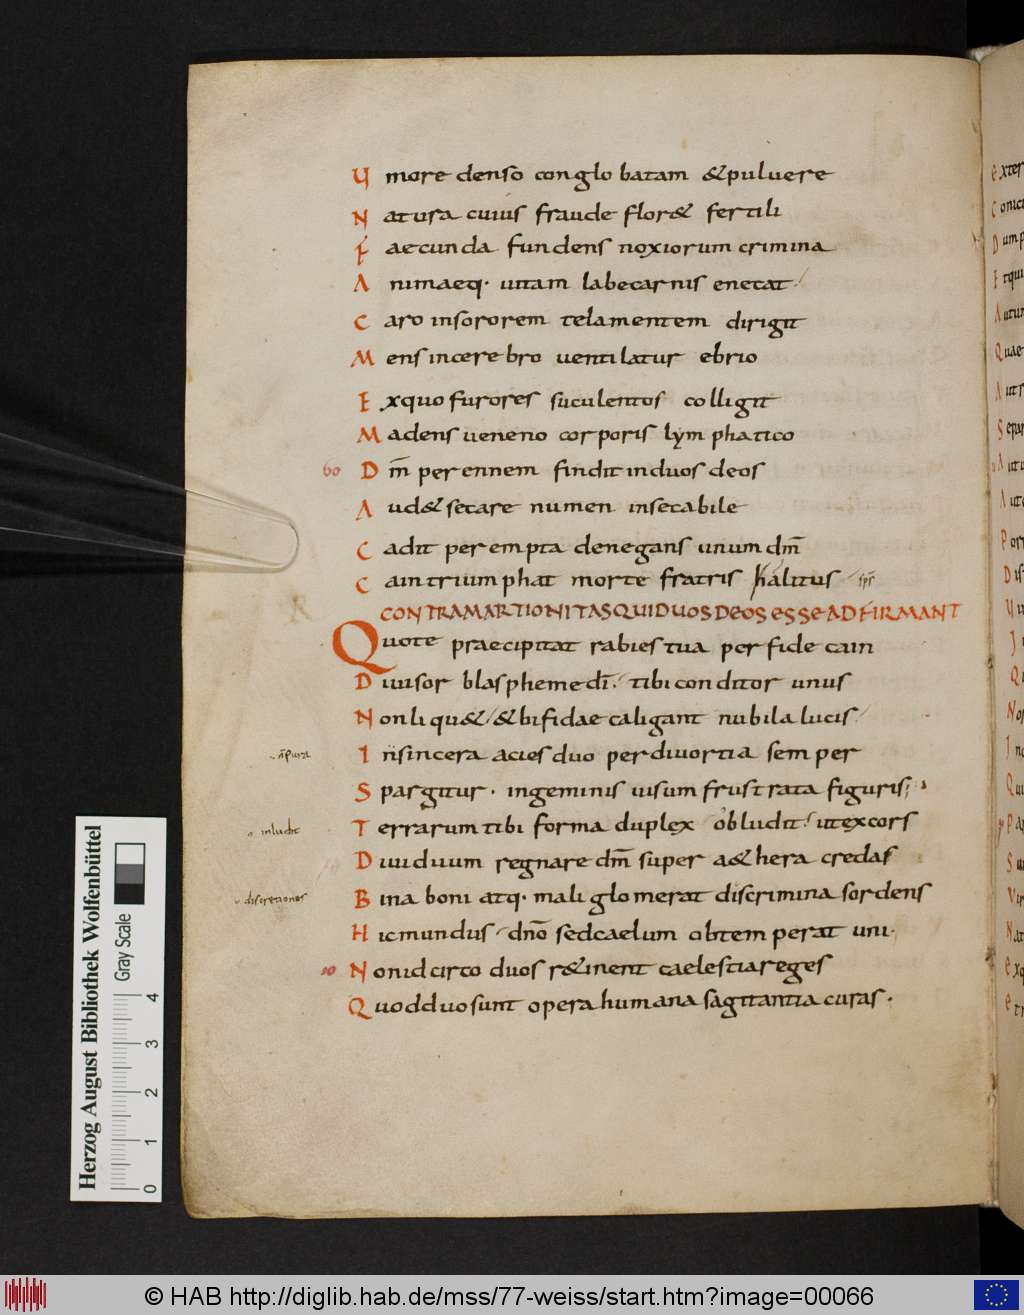 Umore denso conglobatam &pulvere
Natura cuius fraude flor& fertili
Faecunda fundens noxiorum crimina
Animaeq· uitam labe carnis enecat
Caro insororem tela mentem dirigit
Mens in cerebro uentilatur ebrio
Exquo furores suculentos colligit
Madens ueneno corporis lymphatico
60 Dm̄ perennem findit induos deos
Aud& secare numen insecabile
Cadit perempta denegans unum dm̄
Cain triumphat morte fratris halitus
CONTRA MARTIONITAS QUI DUOS DEOS ESSE ADFIRMANT
Quo te praecipitat rabies tua perfide cain
Diuisor blaspheme dī tibi conditor unus
Non liqu& &bifidae caligant nubila lucis
Insincera acies duo per diuortia semper
Spargitur· in geminis uisum frustrata figuris
inludit
Terrarum tibi forma duplex obludit utexcors
Diuiduum regnare dm̄ super a&hera credas
discretiones
Bina boni atq· mali glomerat discrimina sordens
Hic mundus dn̄o sed caelum obtemperat uni·
10 Non idcirco duos r&inent caelestia reges
Quod duo sunt opera humana sagitantia curas·
Herzog August Bibliothek Wolfenbüttel
Gray Scale
0 1 2 3 4
© HAB http://diglib.hab.de/mss/77-weiss/start.htm?image=00066